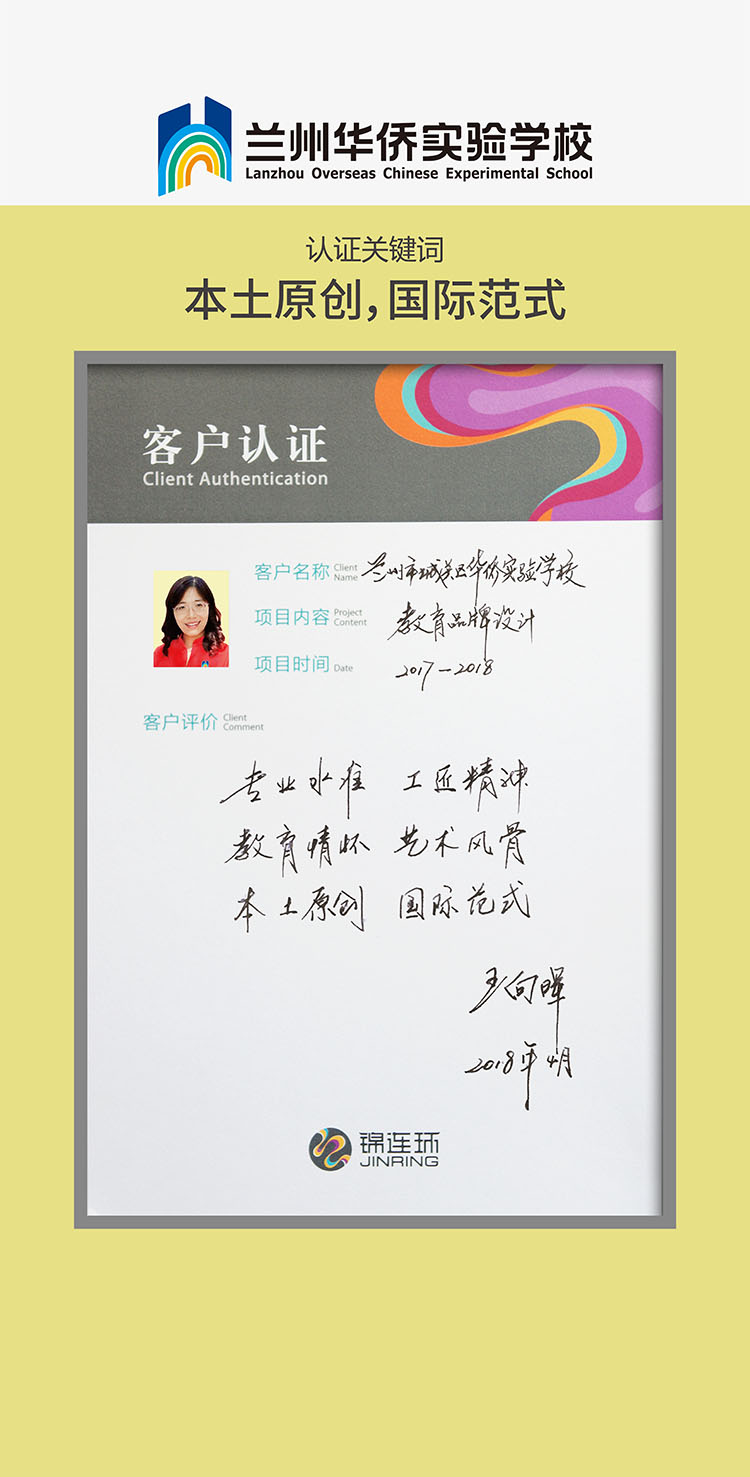 兰州华侨实验学校
Lanzhou Overseas Chinese Experimental School
认证关键词
本土原创，国际范式
客户认证
Client Authentication
客户名称 Client Name 兰州市城关区华侨实验学校
项目内容 Project Content 教育品牌设计
项目时间 Date 2017—2018
客户评价 Client Comment
专业水准 工匠精神
教育情怀 艺术风骨
本土原创 国际范式
王向晖
2018年4月
锦连环
JINRING